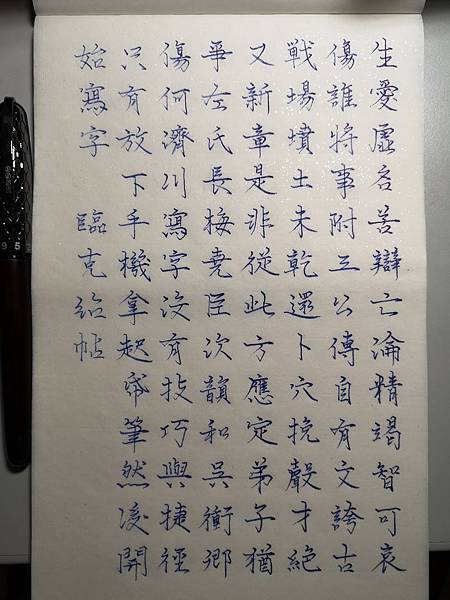 生愛虛名苦辯亡淪精竭智可哀
傷誰將事附三公傳自有文誇古
戦場墳土未乾還卜穴挽聲才絕
又新章是非從此方應定弟子猶
爭左氏長梅堯臣次韻和吳衝卿
傷何濟川寫字沒有技巧與捷徑
只有放下手機拿起帋筆然後開
始寫字 臨克紿帖